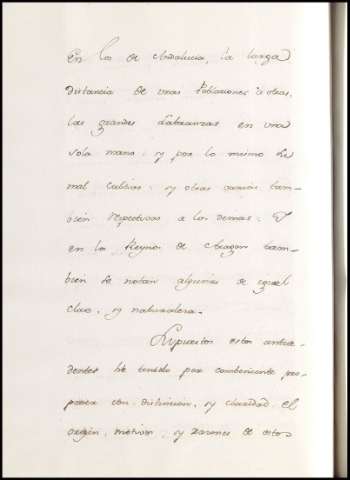 En los de Andalucia, la larga
distancia de unas Poblaciones á otras,
las grandes Labranzas en una
sola mano, y por lo mismo de
mal cultivo, y otras tam-
bien respectivas a los demas. Y
en los Reynos de Aragon tam-
bien se notan algunas de igual
clase, y naturaleza.
Supuestos estos antece-
dentes he tenido por combeniente pro-
poner con distincion, y claridad el
origen, motivos, y razones de estos